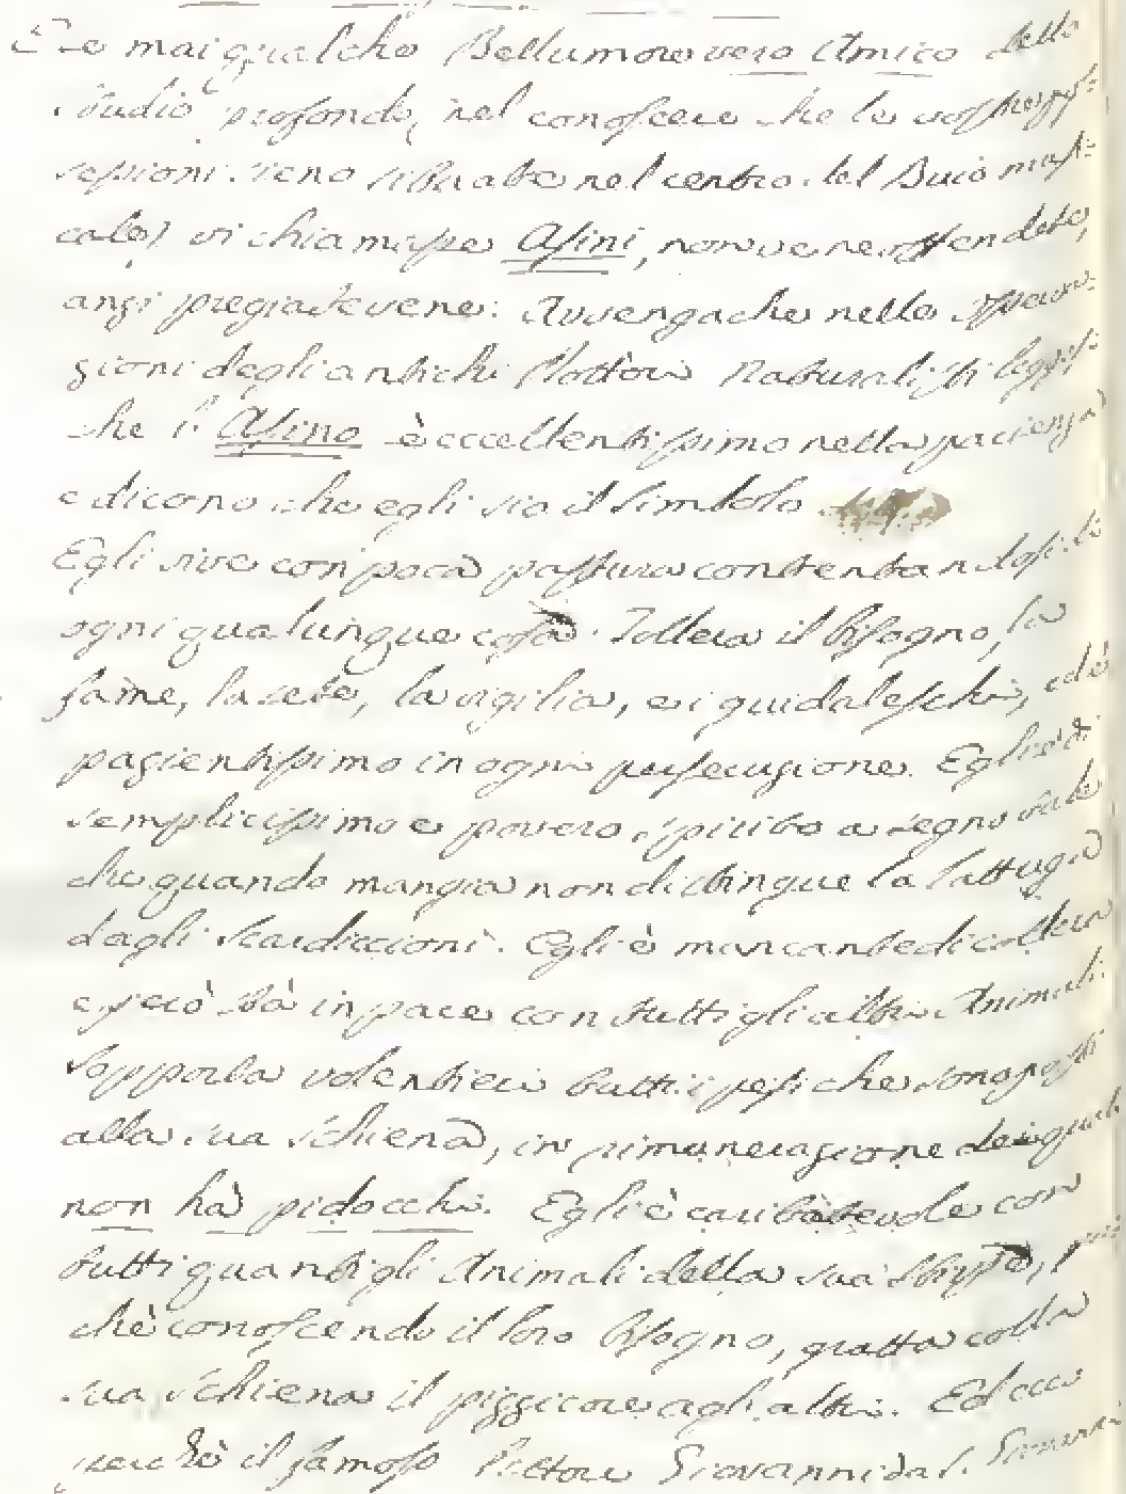 E se mai qualche Bellumore vero Amico dello
studio profondo, nel conoscere che le vostre
sieno situate nel centro del Buio
vi chiamasse Asini, non ve ne offendete,
anzi pregiatevene: Avvengache nelle
zioni degli antichi Dottori Naturalisti
che l'Asino è eccellentissimo nella pacienza
e dicono che egli sia il Simbolo
Egli vive con poca pastura contentandosi di
ogni qualunque cosa. Tollera il bisogno, la
fame, la sete, la vigilia, e i guidaleschi, ed è
pazientissimo in ogni persecuzione. Egli è di
semplicissimo e povero spirito a segno tale
che quando mangia non distingue la lattuga
dagli Scardiccioni. Egli è mancante di collera
e perciò stà in pace con tutti gli altri Animali.
Sopporta volentieri tutti i pesi che sono posti
alla sua schiena, in rimunerazione dei quali
non hà pidocchi. Egli è caritatevole con
tutti quanti gli Animali della sua stirpe,
chè conoscendo il loro bisogno, gratta colla
sua schiena il pizzicore agli altri. Ed ecco
perchè il famoso Pittore Giovanni da S. Giovanni